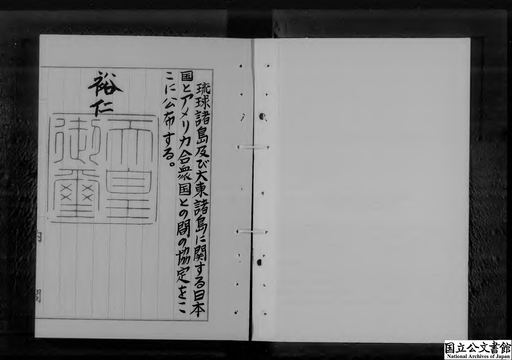 琉球諸島及び大東諸島に関する日本
国とアメリカ合衆国との間の協定をこ
こに公布する。
裕仁
天皇
御璽
国立公文書館
National Archives of Japan